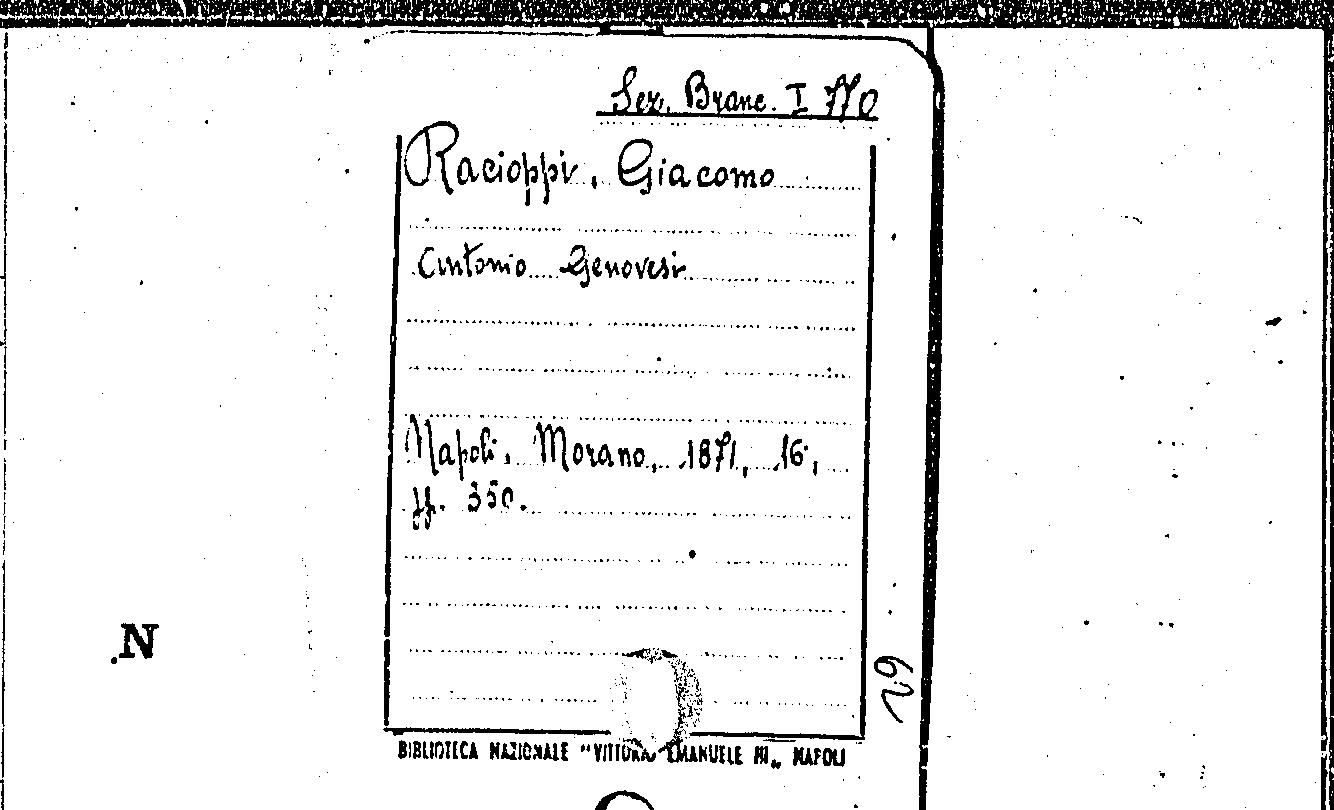 Sez. Branc. I 770
Racioppi, Giacomo
Antonio Genovesi
Napoli, Morano, 1871, 16,
pp. 350.
N
BIBLIOTECA NAZIONALE "VITTORIO EMANUELE III„ NAPOLI